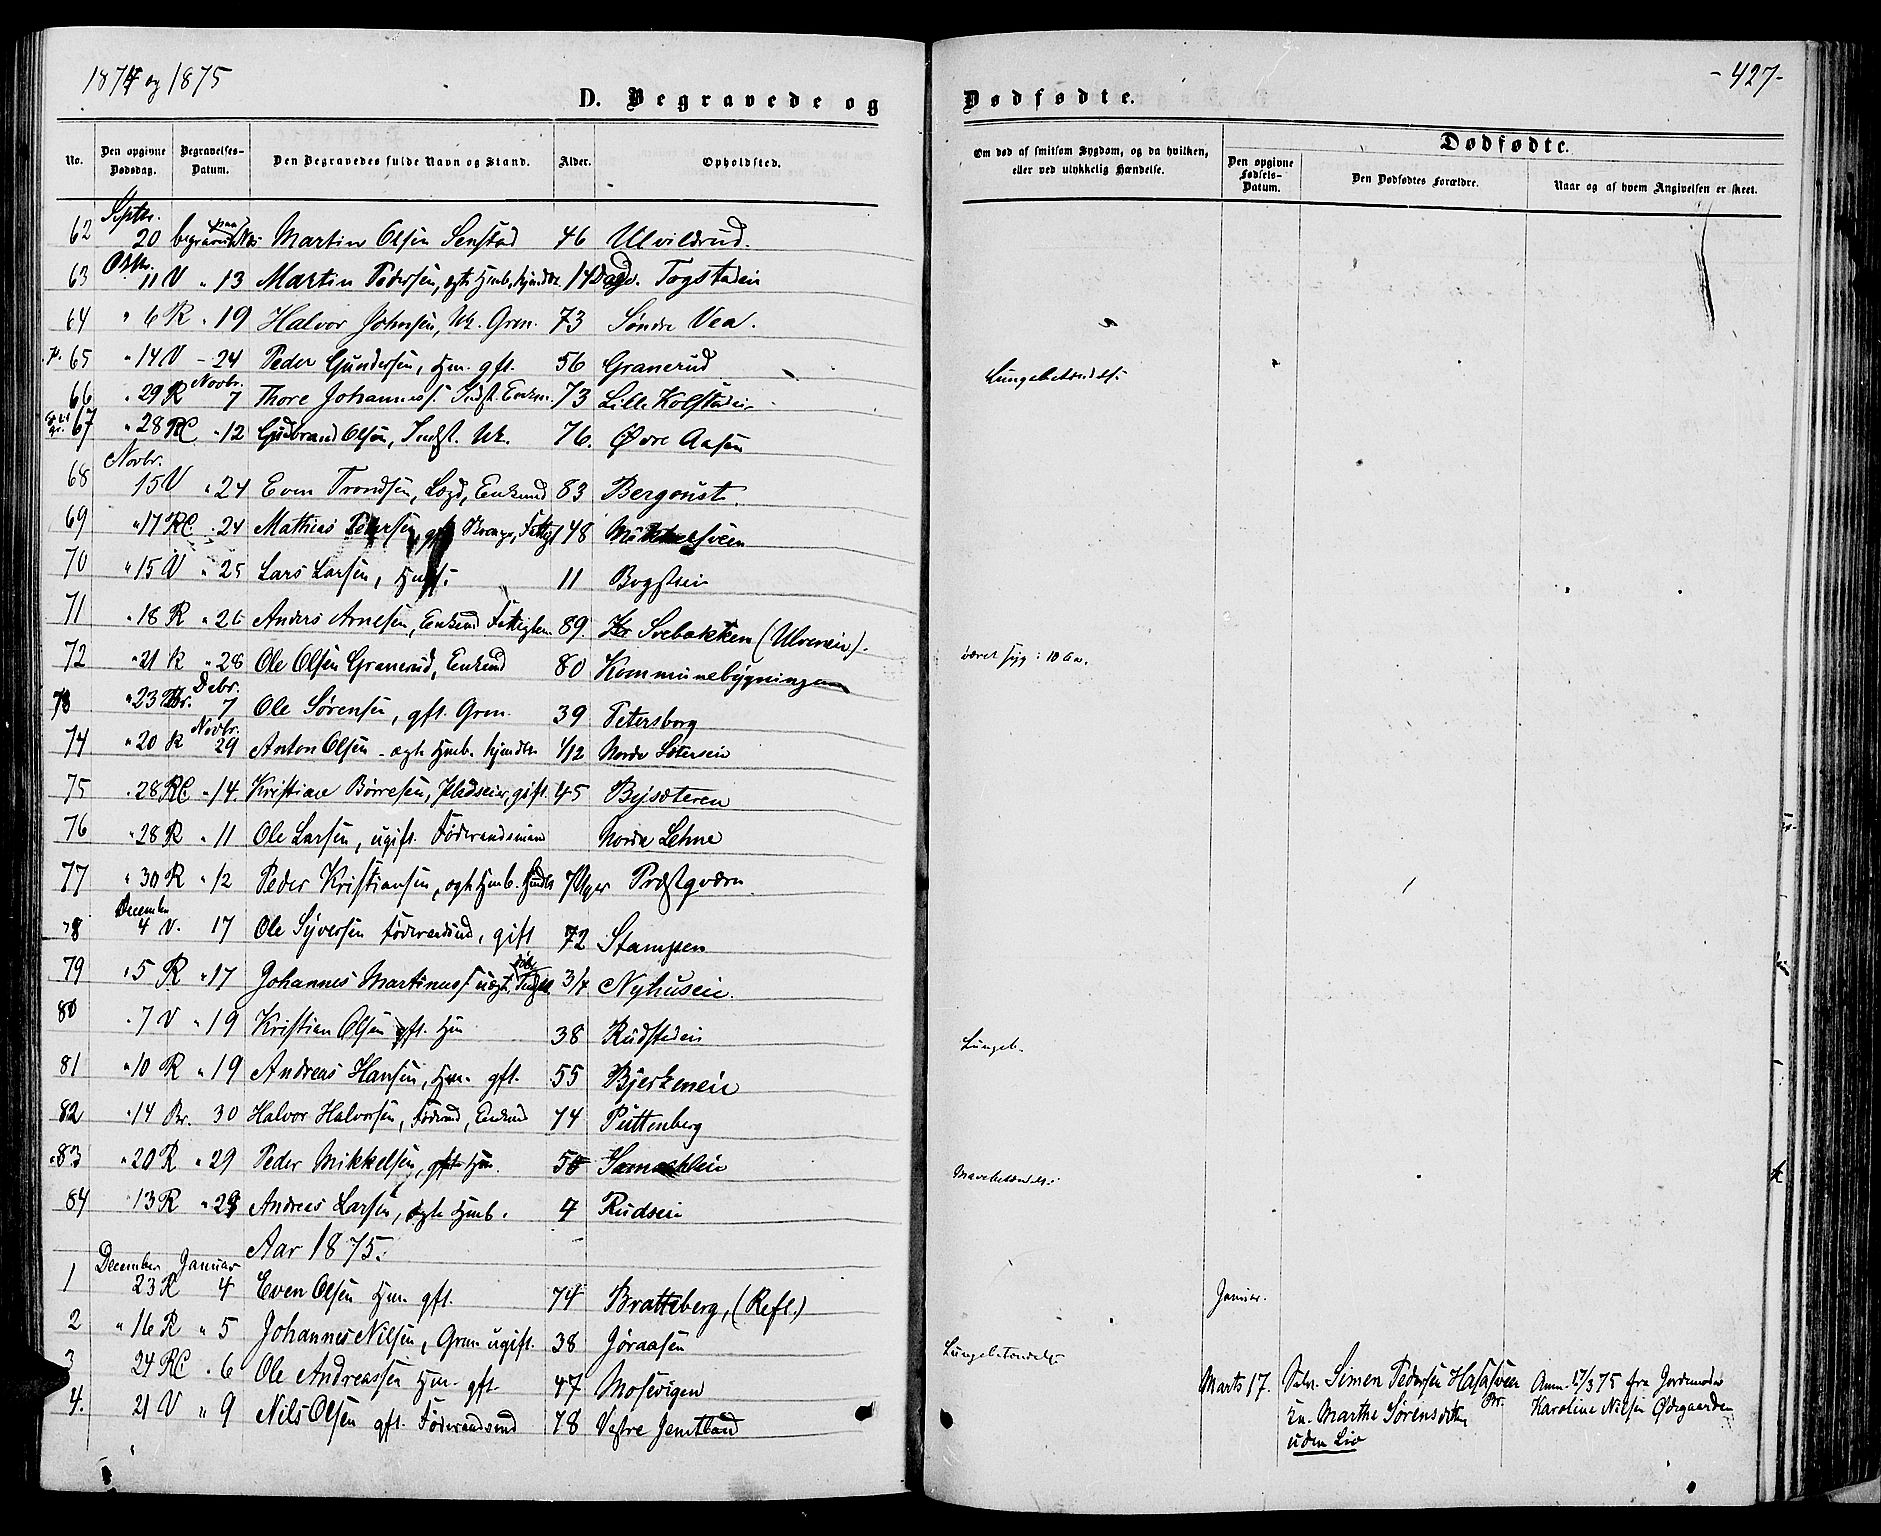 1874 og 1875
D. Begravede og Dødfødte.
-427-
No. Den opgivne Dødsdag. Begravelses-Datum. Den Begravedes fulde Navn og Stand. Alder. Opholdsted. Om død af smitsom Sygdom, og da hvilken, eller ved ulykkelig Hændelse. Dødfødte.
Den opgivne Fødsels-Datum. Den Dødfødtes Forældre. Naar og af hvem Angivelsen er skeet.
Septbr.
62 20 begravet paa Martin Olsen Senstad 46 Ulvildrud.
63 11 V " 13 Martin Pedersen, 14 Dage. Togstadein
64 " 6 R " 19 Halvor Johnsen, Uk. Grm. 73 Søndre Vea.
65 " 14 V - 24 Peder Gundersen, Hm. gft. 56 Granerud Lungebetændels:
Novbr.
66 " 29 R 7 Thore Johanness. Indst. Enkm. 73 Lille Kolstadein
67 " 28 RC " 12 Gudbrand Olsen, Indst. Uk. 76. Øvre Aasen
Novbr.
68 15 V " 24 Even Trondsen, Lægd, Enkemd 83 Bergoust.
69 " 17 RC " 24 Mathias Petersen, gft. 48
70 " 15 V " 25 Lars Larsen, 11 Bogstein
71 " 18 R " 26 Anders Arnesen, Enkemd Fattiglem 89. Svebakken (Ulverein).
72 " 21 R " 28 Ole Olsen Granerud, Enkemd 80 Kommunebygningen været syg i 10 A.
Debr.
73 " 23 Br. 7 Ole Sørensen, gft. Grm. 39 Petersborg
Novbr.
74 " 20 R 29 Anton Olsen - ægte Hmb. 1/12 Nordre
75 " 28 RC " 14. Kristian Børresen, Pladseier, gift. 45 Bysæteren
76 " 28 R " 11 Ole Larsen, ugift. Føderaadsmand Nordre Lehne
77 " 30 R " 12 Peder Kristiansen, ægte Hmb. 7 Uger Præstgværn
December
78 4 V. 17 Ole Syversen Føderaadsmd, gift 72 Stampen
79 " 5 R " 17 Johannes Martinuss. uægte 3/4 Nyhuseie.
80 " 7 V " 19 Kristian Olsen gft. Hm 38 Rudstadein Lungeb.
81 " 10 R " 19 Andreas Hansen, Hm. gft. 55 Bjerkeneie
82 " 14 Br. 30 Halvor Halvorsen, Føderaad, Enkemd 74 Puttenberg
83 " 20 R " 29 Peder Mikkelsen, gft. Hm. 50 Mavebetændels:
84 13 R " 29 Andreas Larsen, ægte Hmb. 4 Rudseie
Aar 1875.
December Januar
1 23 R 4 Even Olsen Hm. gft. 74 Bratteberg, (Refl.) Januar.
2 " 16 R " 5 Johannes Nilsen, Grm. ugift. 38 Jøraasen
3 24 RC " 6 Ole Andreassen Hm. gft. 47 Mosevigen Lungebetændels:
4. 21 V " 9 Nils Olsen gft. Føderaadsmd 78 Vestre Jemtland
Marts 17. Selv. Simen Pedersen Br. Anm. 17/3 75 fra Jordemoder
Marthe Sørensdatter Karoline Nilsen Ødegaarden
uden Liv